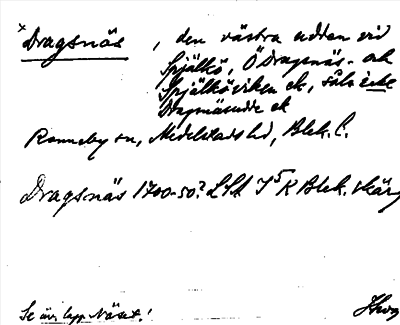 x Dragsnäs, den västra udden vid
Spjälkö, Ö Dragsnäs- och
Spjälköviken ek, såle icke
Dragsnäsudde ek
Ronneby sn, Medelstads hd, Blek. l.
Dragsnäs 1700-50? LSA I 5 K Blek. skärg
Se äv. lapp Näset!